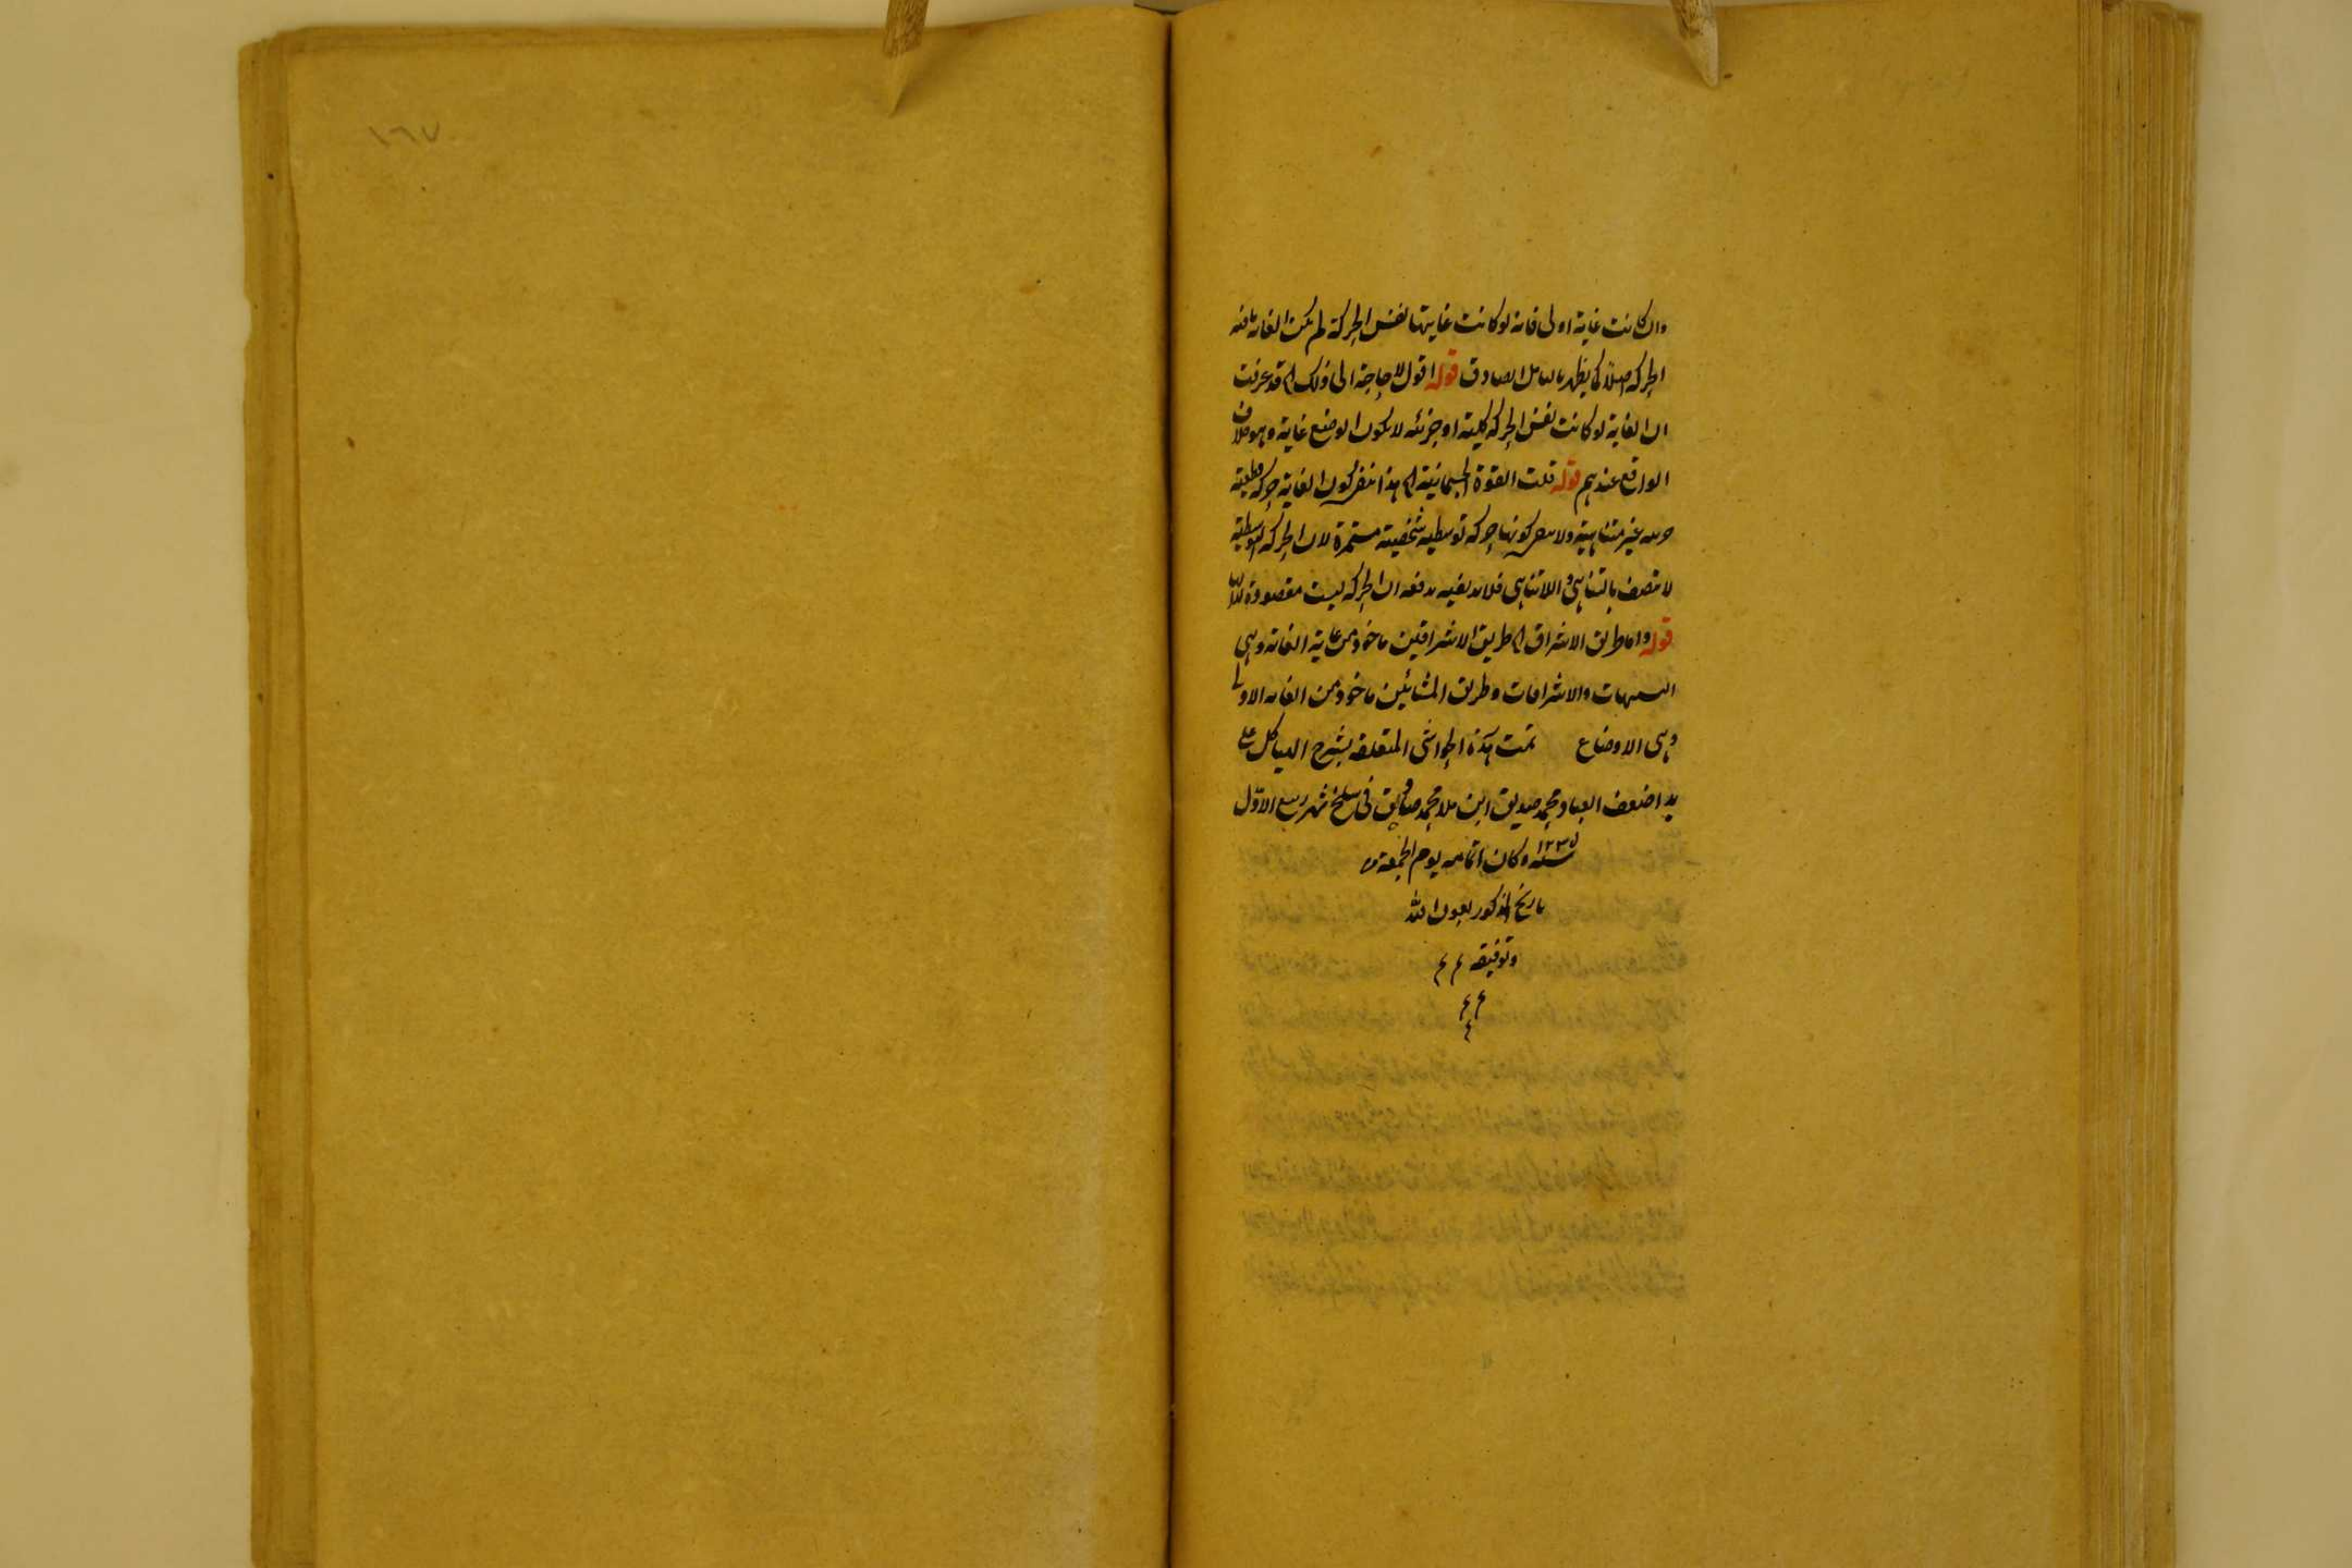 وان كانت غاية اولى فانه لو كانت غايتها نفس الحركة لم يكن الغاية
الحركة اصلا كما يظهر بالتامل الصادق قوله اقول لا حاجة الى ذلك الخ قد عرفت
ان الغاية لو كانت نفس الحركة كلية او جزئية لا يكون الوضع غاية وهو خلاف
الواقع عندهم قوله قلت القوة الجسمانية الخ هذا كون الغاية حركة قطعية
غير متناهية ولا كونها حركة توسطية شخصية مستمرة لان الحركة التوسطية
لا تتصف بالتناهى واللاتناهى فلا بد ان الحركة ليست مقصودة
قوله واما طريق الاشراق الخ طريق الاشراقيين ماخوذ من غاية الغاية وهى
التشبهات والاشراقات وطريق المشائين ماخوذ من الغاية الاولى
وهى الاوضاع تمت هذه الحواشى المتعلقة بشرح الهياكل على
يد اضعف العباد محمد صديق ابن ملا محمد صادق فى سلخ شهر ربيع الاول
سنة ١٢٣٥ وكان اتمامه يوم الجمعة من
تاريخ المذكور بعون الله
وتوفيقه م م
م م
م
١٦٧